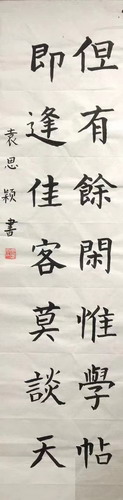 但有餘閑惟學帖
即逢佳客莫談天
袁思穎書